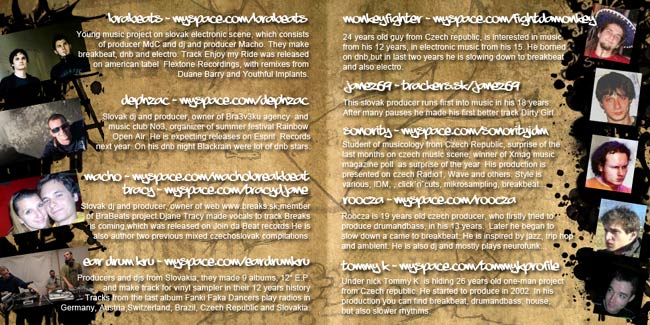 brabeats - myspace.com/brabeats
Young music project on slovak electronic scene, which consists
of producer MdC and dj and producer Macho. They make
breakbeat, dnb and electro. Track Enjoy my Ride was released
on american label Flextone Recordings, with remixes from
Duane Barry and Youthful Implants.
dephzac - myspace.com/dephzac
Slovak dj and producer, owner of Bra3v3ku agency and
music club No3, organizer of summer festival Rainbow
Open Air. He is expecting releases on Esprit Records
next year. On his dnb night Blackrain were lot of dnb stars.
macho - myspace.com/machobreakbeat
tracy - myspace.com/tracydjane
Slovak dj and producer, owner of web www.breaks.sk,member
of BraBeats project.Djane Tracy made vocals to track Breaks
is coming,which was released on Join da Beat records.He is
also author two previous mixed czechoslovak compilations.
ear drum kru - myspace.com/eardrumkru
Producers and djs from Slovakia, they made 9 albums, 12" E.P.
and make track for vinyl sampler in their 12 years history
Tracks from the last album Fanki Faka Dancers play radios in
Germany, Austria Switzerland, Brazil, Czech Republic and Slovakia.
monkeyfighter - myspace.com/fightdamonkey
24 years old guy from Czech republic, is interested in music
from his 12 years, in electronic music from his 15. He borned
on dnb,but in last two years he is slowing down to breakbeat
and also electro.
janez69 - brackers.sk/janez69
This slovak producer runs first into music in his 18 years.
After many pauses he made his first better track Dirty Girl.
sonority - myspace.com/sonorityidm
Student of musicology from Czech Republic, surprise of the
last months on czech music scene, winner of Xmag music
magazine poll as surprise of the year. His production is
presented on czech Radio1, Wave and others. Style is
various, IDM, , click'n'cuts, mikrosampling, breakbeat...
roocza - myspace.com/roocza
Roocza is 19 years old czech producer, who firstly tried to
produce drumandbass, in his 13 years. Later he began to
slow down a came to breakbeat. He is inspired by jazz, trip hop
and ambient. He is also dj and mostly plays neurofunk..
tommy k - myspace.com/tommykprofile
Under nick Tommy K. is hiding 26 years old one-man project
from Czech republic. He started to produce in 2002. In his
production you can find breakbeat, drumandbass, house,
but also slower rhythms.